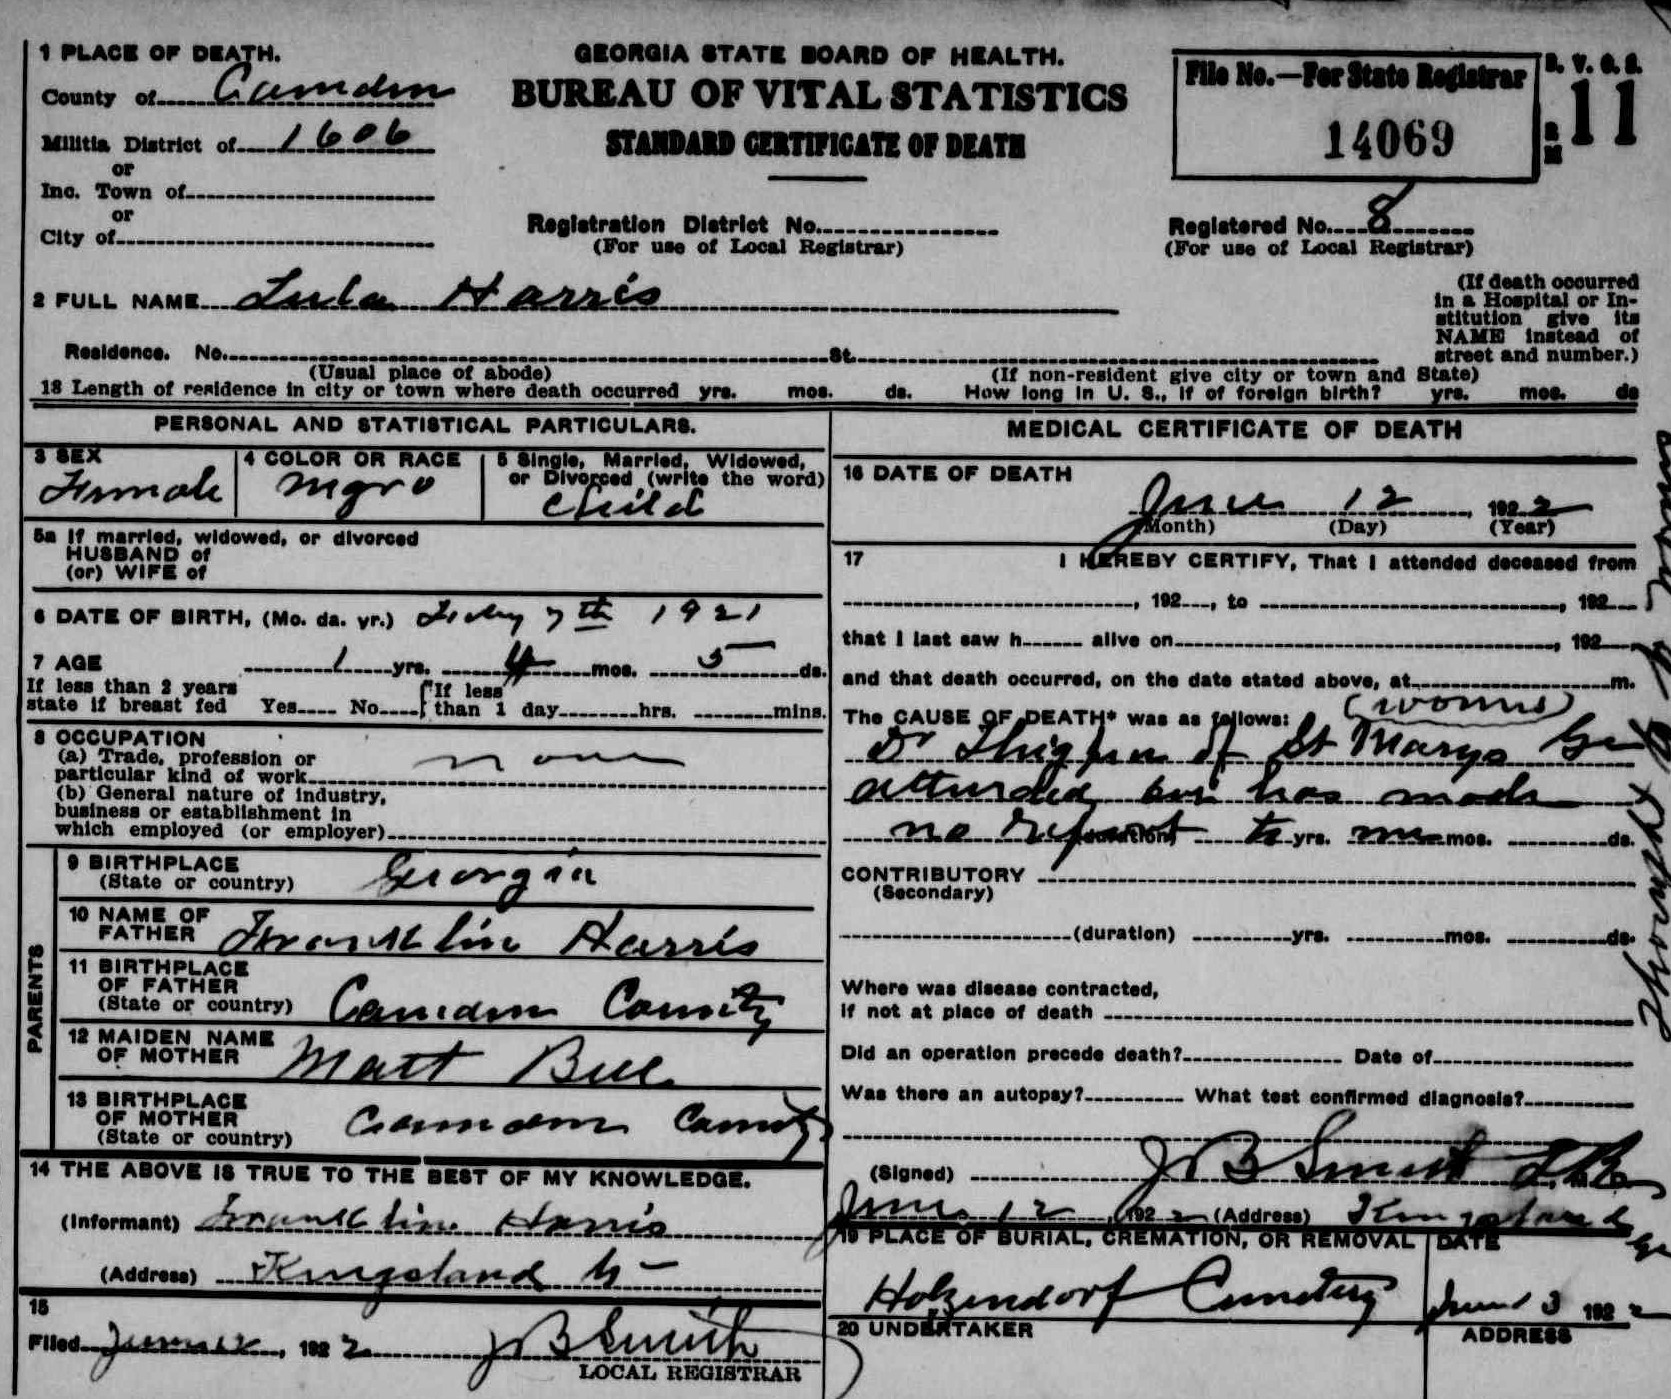 1 PLACE OF DEATH.
County of Camden
Militia District of 1606
or
Inc. Town of
or
City of
GEORGIA STATE BOARD OF HEALTH.
BUREAU OF VITAL STATISTICS
STANDARD CERTIFICATE OF DEATH
Registration District No.
(For use of Local Registrar)
File No.—For State Registrar
14069
11
Registered No. 8
(For use of Local Registrar)
2 FULL NAME Lula Harris
(If death occurred
in a Hospital or In-
stitution give its
NAME instead of
street and number.)
Residence. No. St.
(Usual place of abode) (If non-resident give city or town and State)
18 Length of residence in city or town where death occurred yrs. mos. ds. How long in U. S., if of foreign birth? yrs. mos. ds
PERSONAL AND STATISTICAL PARTICULARS.
3 SEX
Female
4 COLOR OR RACE
negro
5 Single, Married, Widowed,
or Divorced (write the word)
child
5a If married, widowed, or divorced
HUSBAND of
(or) WIFE of
6 DATE OF BIRTH, (Mo. da. yr.) 7th 1921
7 AGE 1 yrs. 4 mos. 5 ds.
If less than 2 years
state if breast fed Yes No
If less
than 1 day hrs. mins.
8 OCCUPATION
(a) Trade, profession or
particular kind of work none
(b) General nature of industry,
business or establishment in
which employed (or employer)
PARENTS
9 BIRTHPLACE
(State or country) Georgia
10 NAME OF
FATHER Frankklin Harris
11 BIRTHPLACE
OF FATHER
(State or country) Camden County
12 MAIDEN NAME
OF MOTHER Matt
13 BIRTHPLACE
OF MOTHER
(State or country) Camden County
14 THE ABOVE IS TRUE TO THE BEST OF MY KNOWLEDGE.
(Informant) Frankklin Harris
(Address) Kingsland
15
Filed June 12, 1922 J B Smith
LOCAL REGISTRAR
MEDICAL CERTIFICATE OF DEATH
16 DATE OF DEATH
June 12, 1922
(Month) (Day) (Year)
17 I HEREBY CERTIFY, That I attended deceased from
, 192 , to , 192
that I last saw h alive on , 192
and that death occurred, on the date stated above, at m.
The CAUSE OF DEATH* was as follows: (worms)
Dr Thigpen of St Marys Ga
attended but has made
no report (duration) to yrs. me mos. ds.
CONTRIBUTORY
(Secondary)
(duration) yrs. mos. ds.
Where was disease contracted,
if not at place of death
Did an operation precede death? Date of
Was there an autopsy? What test confirmed diagnosis?
(Signed) J B Smith
June 12, 1922 (Address) Kingsland Ga
19 PLACE OF BURIAL, CREMATION, OR REMOVAL DATE
Holzendorf Cemetery June 13 1922
20 UNDERTAKER ADDRESS
Thought to